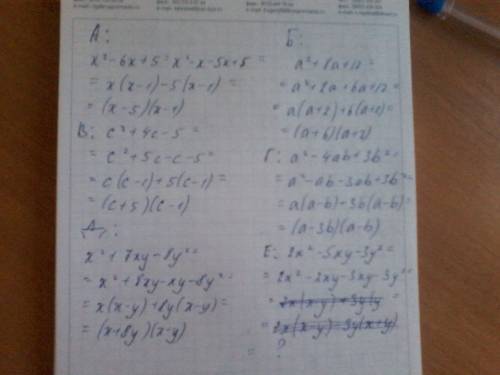 А:
x² - 6x + 5 = x² - x - 5x + 5 =
= x(x-1) - 5(x-1) =
= (x-5)(x-1)
В: c² + 4c - 5 =
= c² + 5c - c - 5 =
= c(c-1) + 5(c-1) =
= (c+5)(c-1)
Д:
x² + 7xy - 8y² =
= x² + 8xy - xy - 8y² =
= x(x-y) + 8y(x-y) =
= (x+8y)(x-y)
Б:
a² + 8a + 12 =
= a² + 2a + 6a + 12 =
= a(a+2) + 6(a+2) =
= (a+6)(a+2)
Г: a² - 4ab + 3b² =
= a² - ab - 3ab + 3b² =
= a(a-b) - 3b(a-b) =
= (a-3b)(a-b)
Е: 2x² - 5xy - 3y² =
= 2x² - 2xy - 3xy - 3y² =
= 2x(x-y) + 3y(y =
= 2x(x-y) - 3y(x+y)
= ?